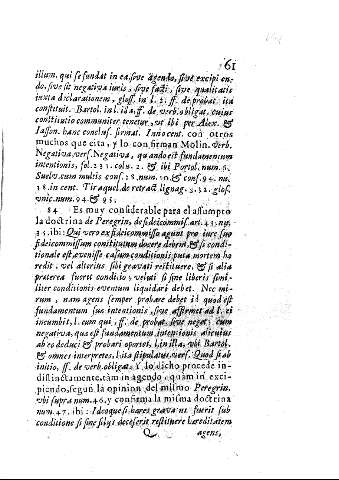 61
illum, qui se fundat in ea, sive agendo, sive excipiendo, sive sit negativa iuris, sive facti, sive qualitatis
iuxta declarationem, gloss. in l. 2. ff. de probat. ita
constituit. Bartol. in l. ita, ff. de verb. obligat. cuius
constitutio communiter tenetur, ut ibi per Alex. &
Iasson. hanc conclus. firmat. Innocent. con otros
muchos que cita, y lo confirman Molin. verb.
Negativa, vers. Negativa, quando est fundamentum
intentionis, fol. 231. colu. 2. & ibi Portol. num. 5.
Suelv. cum multis cons. 28. num. 10. & cons. 94. nu.
18. in cent. Tiraquel. de retract. lignag. §. 32. glos.
unic. num. 94. & 95.
84 Es muy considerable para el assumpto
la doctrina de Peregrin. de fideicomiss. art. 43. nu.
35. ibi: Qui vero ex fideicomisso agunt pro iure suo
fideicommissum constitutum docere debent, & si conditionale
est, evenisse casum conditionis puta mortem haredit.
vel alterius sibi gravati restituere, & si alia
praeterea fuerit conditio; veluti si sine liberis similiter
conditionis eventum liquidari debet. Nec mirum,
nam agens semper probare debet id quod est
fundamentum sua intentionis, sive affirmet ad l. ei
incumbit, l. cum qui, ff. de probat. sive neget: cum
negativa, qua est fundamentum intentionis alicuius
ab es deduci & probari oportet, l. in illa, ubi Bartol.
& omnes interpretes, l. ita stipulatus, vers. Quod si ab
initio, ff. de verb. obligat. Y lo dicho procede indistinctamente,
tàm in agendo, quam in excipiendo,
segun la opinion del mismo Peregrin.
ubi supra num. 46. y confirma la misma doctrina
num. 47. ibi: Ideoque si hares gravatus fuerit sub
conditione si sine filijs decesserit restituere hareditatem
Q agens,